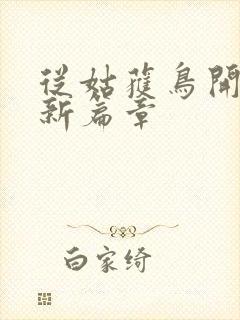 從姑獲鳥開
新篇章
白家綺